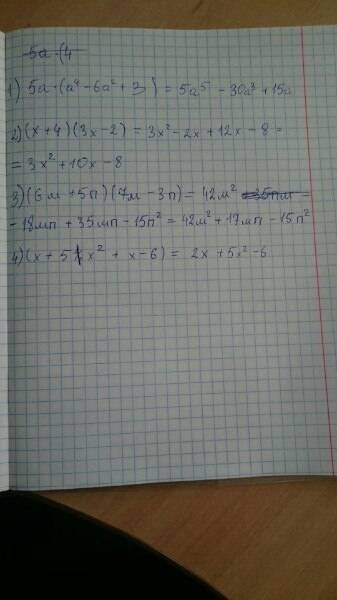 5a·(4
1) 5a·(a⁴-6a²+3) = 5a⁵ - 30a³ + 15a
2) (x+4)(3x-2) = 3x²-2x+12x-8=
= 3x²+10x-8
3) (6м+5п)(7м-3п) = 42м² -35пм -
- 18мп + 35мп - 15п² = 42м² + 17мп - 15п²
4) (x + 5 x² + x-6) = 2x + 5x² - 6